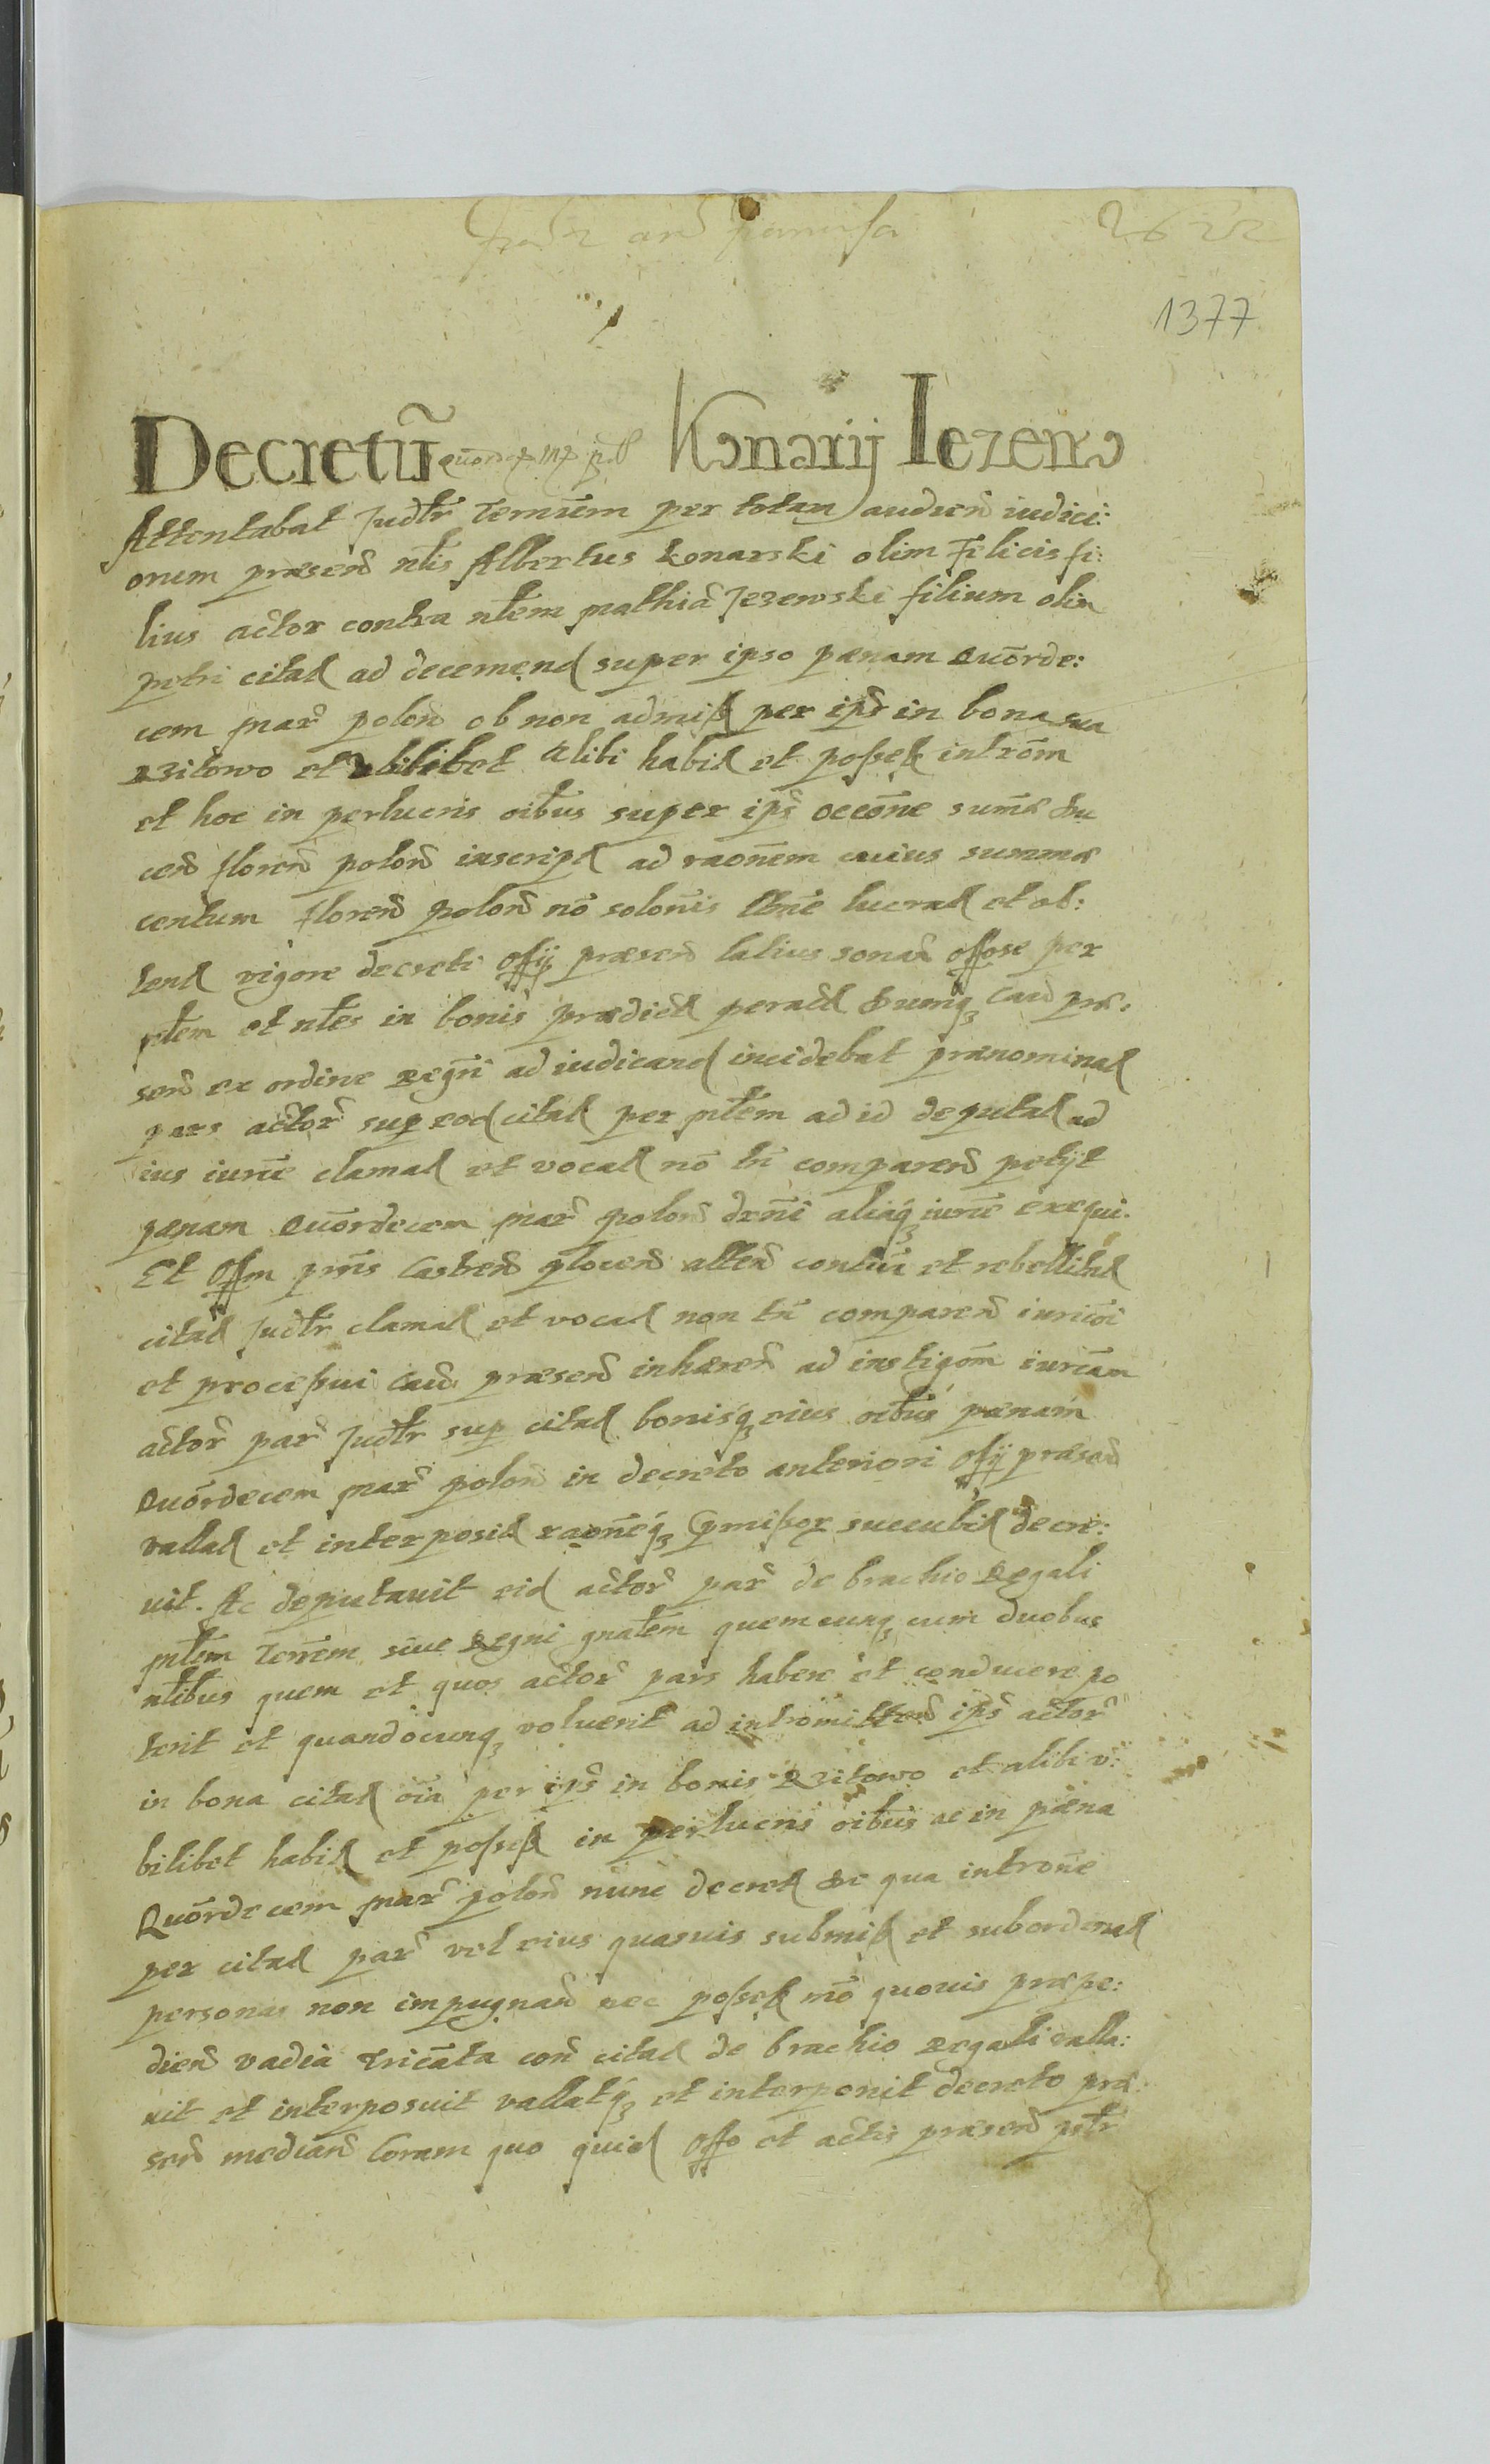 1377
Decretū Konarij Iezew
Attentabat Judtr Termīm per totam audien iudici:
orum præsen nlis Albertus Konarski olim Felicis fi:
lius actor contra nlem Mathiā Jezewski filium olim
Petri citat ad decernend super ipso pænam Quōrde:
cem Mar polon ob non admiss per ips in bona sua
Rzitowo et Vbilibet Alibi habit et possess introm
et hoc in perlucris oibus super ips occōne sumæ Du
cen floren polon inscript ad raonem cuius summæ
centum floren polon nō solonis lbnē lucrat et ob:
tent vigore decreti Offij præsen latius sonan offose per
Mlem et nles in bonis prædict peract Dumq Caus præ:
sen ex ordine Regri ad iudicand incidebat prænominat
pars actor sup eod citat per Mlem ad id deputat ad
ius iurne clamat et vocat nō tn comparen petijt
pænam Quōrdecem Mar polon drni aliaq iurne exequi.
Et Offm pnns Castren plocen atten contum et rebellitat
citat Judtr clamat et vocat non tn comparen iuricoi
et processui Caus præsen inhæren ad instigōm iuricam
actor par Judtr sup citat bonisq eius oibus pænam
Quōrdecem Mar polon in decreto anteriori Offij præsen
vallat et interposit raoneq præmissor succubit decre:
uit. Ac deputauit eid actor par de brachio Regali
Mlem Terrem siue Regni gnalem quemcunq cum duobus
nlibus quem et quos actor pars habere et conducere po
terit et quandocunq voluerit ad intromitten ips actor
in bona citat oia per ips in bonis Rzitowo et alibi v:
bilibet habit et possess in perlucris oibus ac in pæna
Quōrdecem Mar polon nunc decret De qua introne
per citat par vel eius quasuis submiss et subordinat
personas non impugnan nec possess mō quouis præpe:
dien vadia Tricāta con citat de brachio Regali valla:
uit et interposuit vallatq et interponit decreto præ:
sen median Coram quo quid Offo et actis præsen pstr